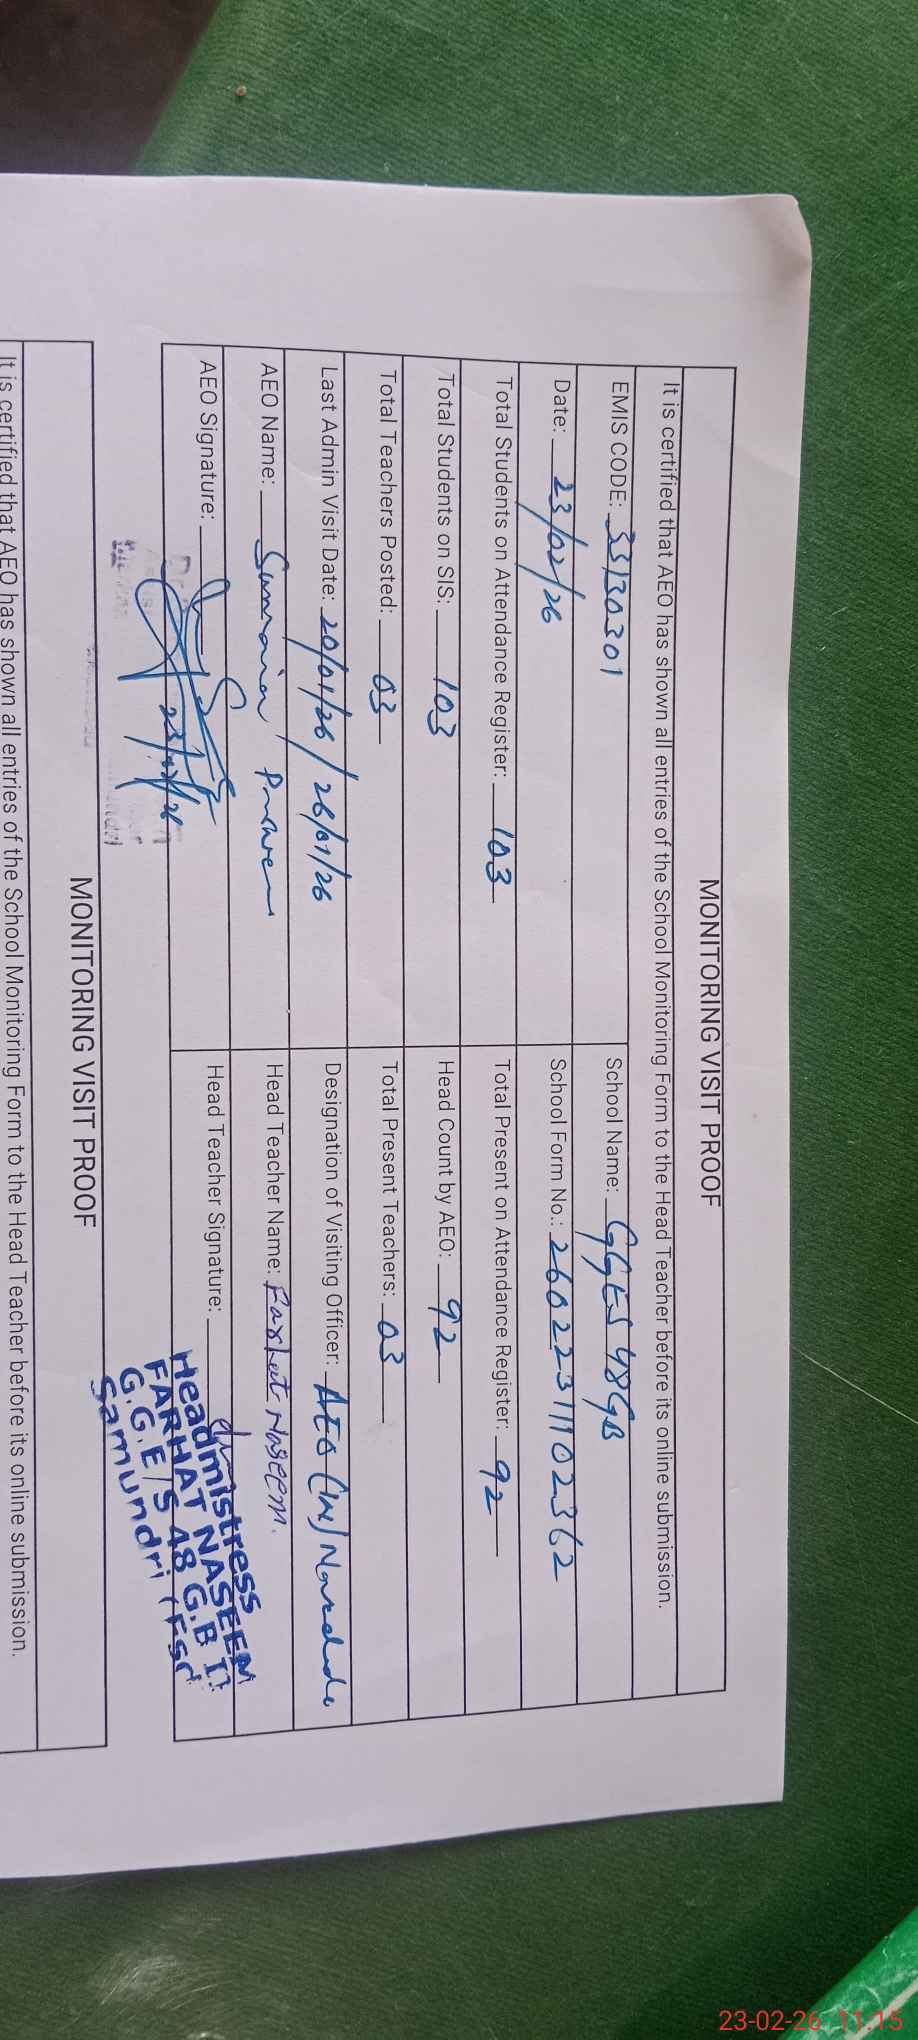 MONITORING VISIT PROOF
It is certified that AEO has shown all entries of the School Monitoring Form to the Head Teacher before its online submission.
EMIS CODE: 33130301 School Name: GGES 48GB
Date: 23/02/26 School Form No.: 260223111102362
Total Students on Attendance Register: 103 Total Present on Attendance Register: 92
Total Students on SIS: 103 Head Count by AEO: 92
Total Teachers Posted: 03 Total Present Teachers: 03
Last Admin Visit Date: 20/01/26 / 26/01/26 Designation of Visiting Officer: AEO (W)
AEO Name: Head Teacher Name: Farhat Naseem.
AEO Signature: 23/02/26 Head Teacher Signature:
Headmistress
FARHAT NASEEM
G.G.E/S 48 G.B
Samundri (Fsd
MONITORING VISIT PROOF
It is certified that AEO has shown all entries of the School Monitoring Form to the Head Teacher before its online submission.
23-02-26 11:15